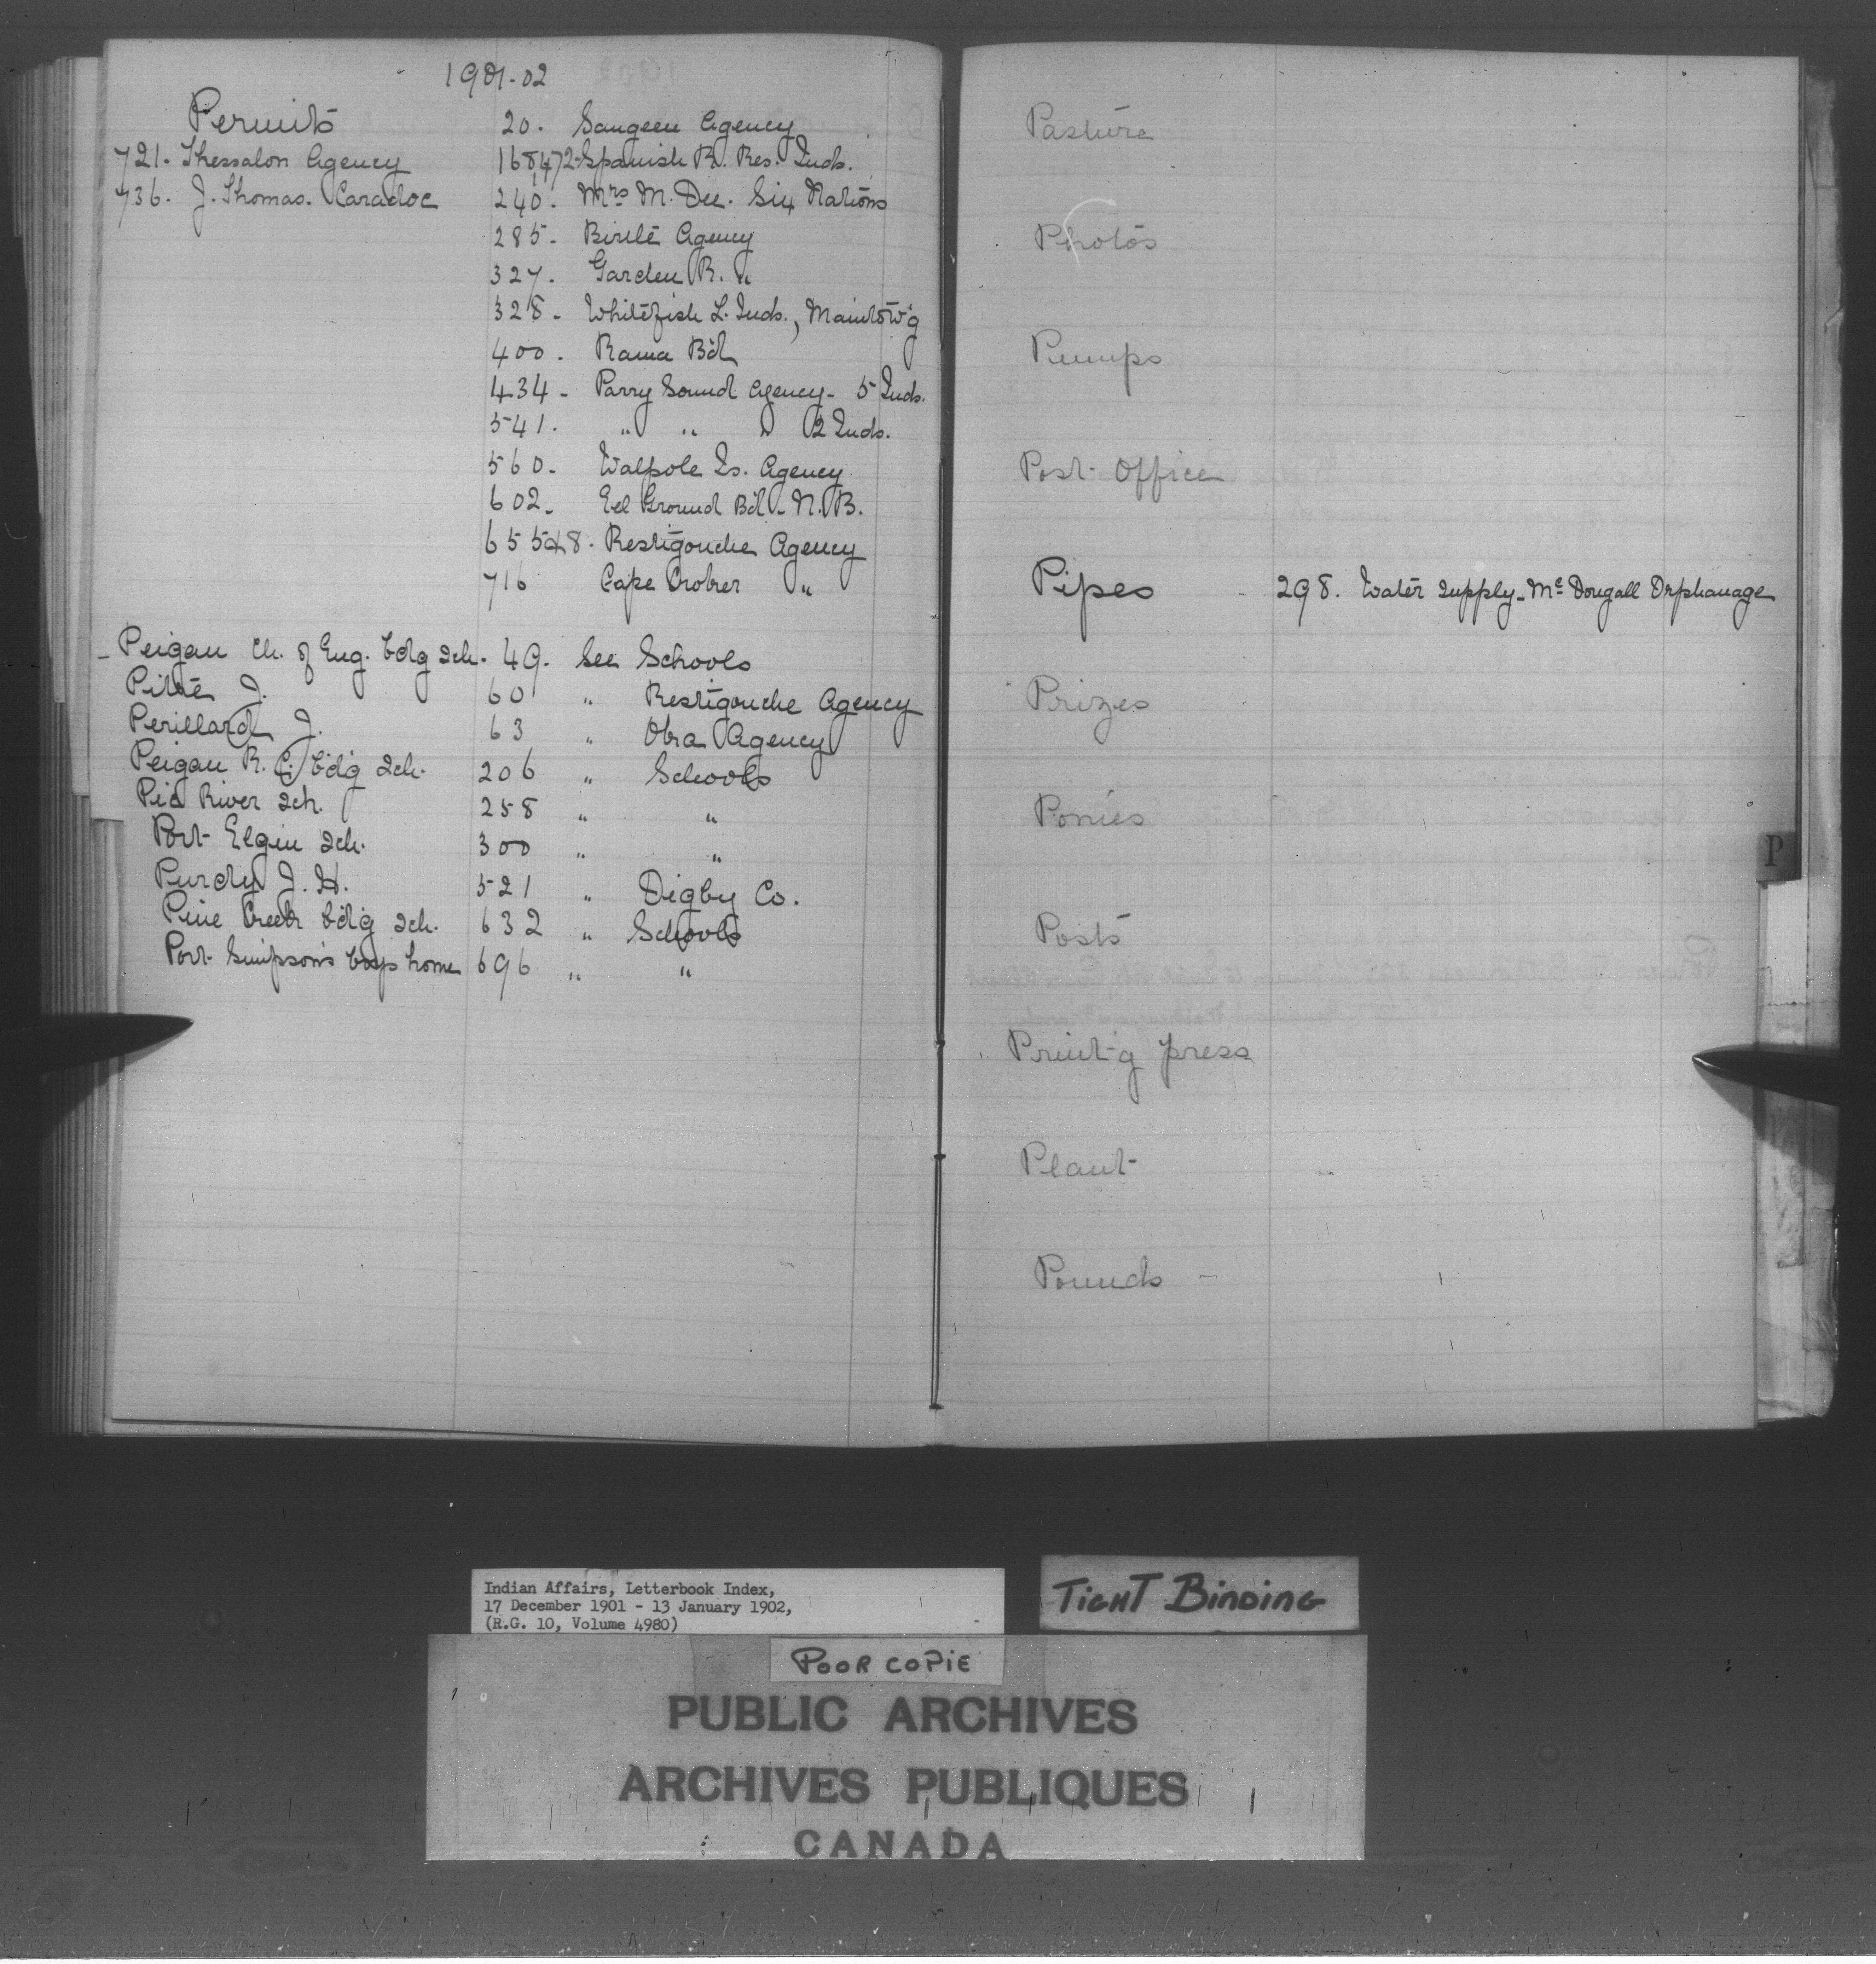 1901-02
Permits
20. Saugeen Agency
721. Thessalon Agency
168,472- Spanish R. Res. Inds.
736. J. Thomas. Caradoc
240. Mrs M. Dee. Six Nations
285- Birtle Agency
327. Garden R. "
328- Whitefish L. Inds., Manitow'g
400. Rama Bd
434- Parry Sound Agency- 5 Inds.
541. " " " 2 Inds.
560- Walpole Is. Agency
602- Eel Ground Bd- N.B.
655&8. Restigouche Agency
716 Cape Croker "
Peigan Ch. of Eng. bdg sch. 49. See Schools
J. 60 " Restigouche Agency
Perillard J. 63 " Oka Agency
Peigan R. C. bdg sch. 206 " Schools
Pic River sch. 258 " "
Port Elgin sch. 300 " "
Purdy J. H. 521 " Digby Co.
Pine Creek bdg sch. 632 " Schools
Port Simpson's boys home 696 " "
Pasture
Photos
Pumps
Post Office
Pipes - 298. Water supply- Mc Dougall Orphanage
Prizes
Ponies
P
Posts
Print'g press
Plant
Pounds -
Indian Affairs, Letterbook Index,
17 December 1901 - 13 January 1902,
(R.G. 10, Volume 4980)
TIGHT BINDING
POOR COPIE
PUBLIC ARCHIVES
ARCHIVES PUBLIQUES
CANADA